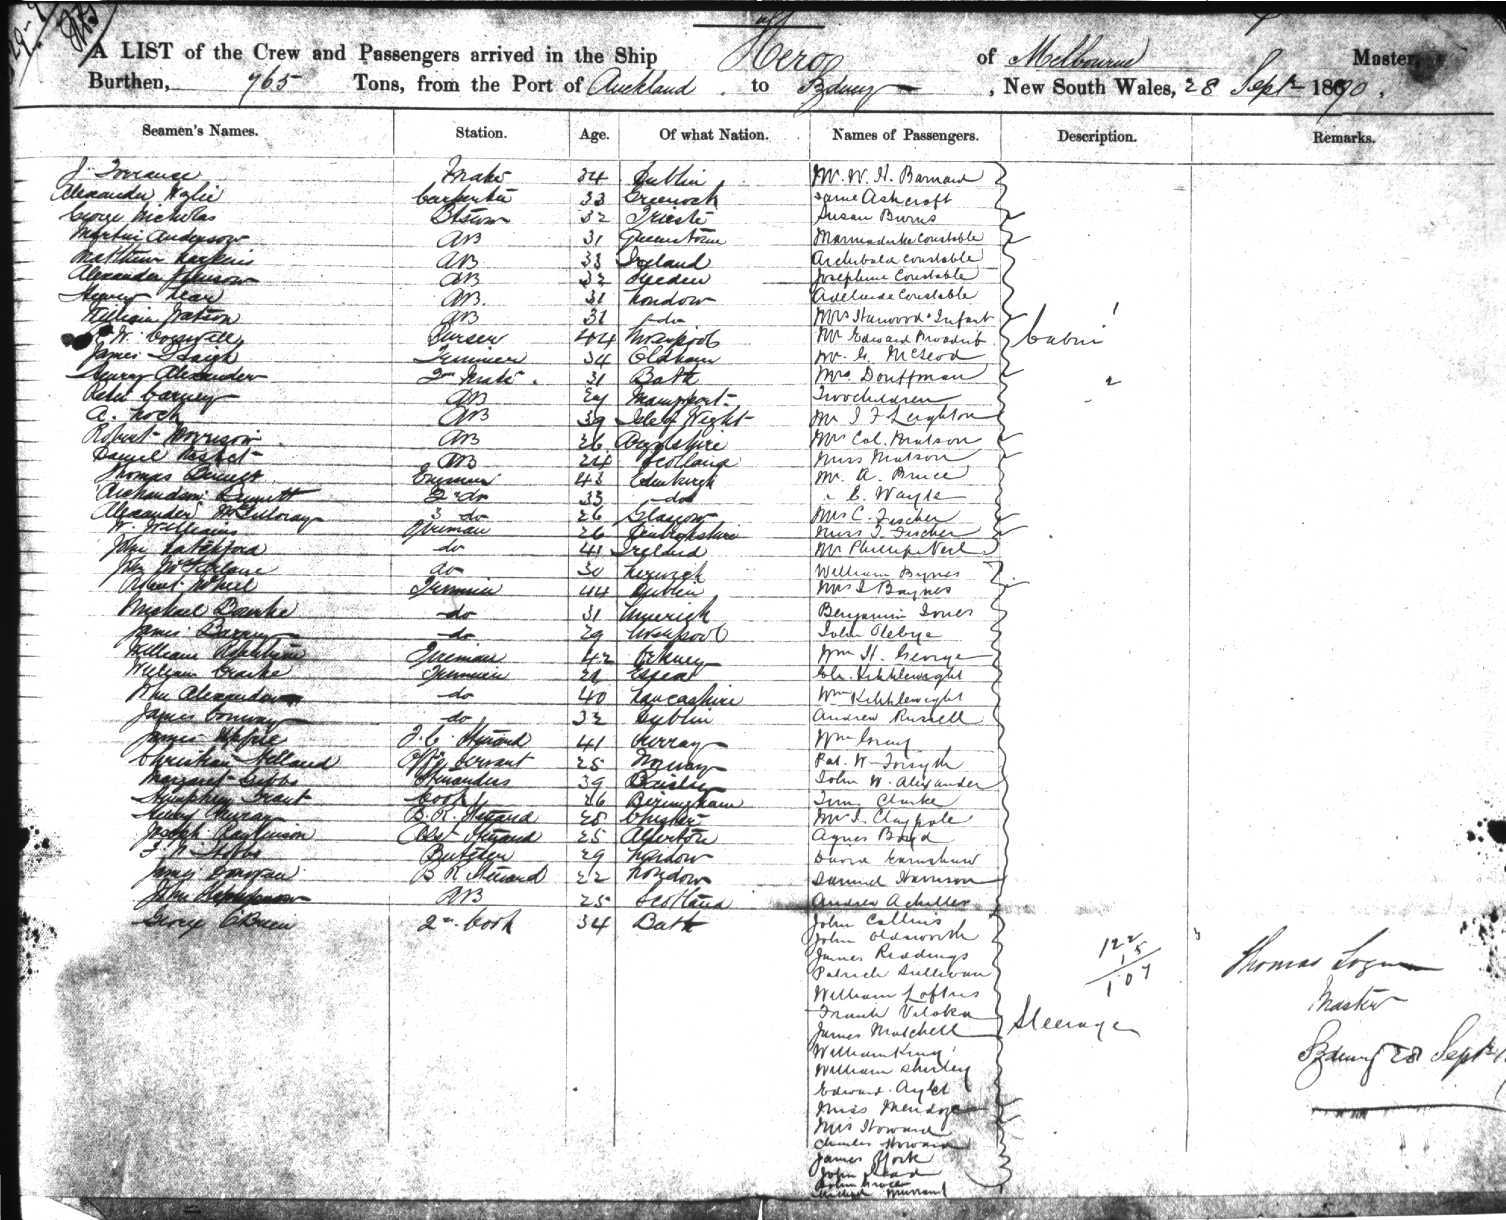 A LIST of the Crew and Passengers arrived in the Ship Hero of Melbourne Master,
Burthen, 765 Tons, from the Port of Auckland to Sydney, New South Wales, 28 Sept 1870.
Seamen's Names. Station. Age. Of what Nation. Names of Passengers. Description. Remarks.
J. Torrance Mate 34 Dublin Mr. W. H. Barnard
Alexander Wylie Carpenter 33 Greenock Jane Ashcroft
George Nicholas Btswn 32 Trieste Susan Burns
Martin Anderson AB 31 Queenstown Marmaduke Constable
Matthew Harkins AB 33 Ireland Archibald Constable
Alexander Johnson AB 32 Sweden Josephine Constable
Henry Lear AB. 31 London Adelaide Constable
William Watson AB 31 do Mrs Harwood & Infant
W. Cornwell Purser 44 Liverpool Mr Edward Broadrib Cabin
James Haigh Trimmer 34 Oldham Mr. G. McLeod
Henry Alexander 2nd Mate. 31 Bath Mrs. Douffman
Peter Carney AB Two children
A. Lock AB 39 Isle of Wight Mr I F Leighton
Robert Morrison AB 26 Argyleshire Mrs Col. Matson
Daniel Nesbet AB 24 Scotland Miss Matson
Thomas Engineer 43 Edinburgh Mr. A. Bruce
Bennett 2nd do 33 do " C. Wayte
Alexander McGilloray 3 do 26 Glasgow Mrs C. Fischer
W. Williams Fireman 26 Pembrokeshire Miss F. Fischer
John Latchford do 41 Ireland Mr Phillip
John McFarlane do 30 William Byrnes
Robert McNeil Trimmer 44 Dublin Mrs I Baynes
Michael Bourke do 31 Limerick Benjamin Jones
James do 29 Liverpool John
William Fireman 42 Orkney Wm H. George
William Clarke Trimmer 21 Essex Kibblewight
John Alexander do 40 Lancashire Wm Kibblewight
James Conway do 32 Dublin Andrew Russell
James F. C. Steward 41 Murray Wm
Christian Holland Offrs Servant 25 Norway Pat. W. Forsyth
Margaret Gibbs Stewardess 39 Paisley John W. Alexander
Humphrey Grant Cook 26 Birmingham Clarke
Henry Murray B. R. Steward 28 Chester Mr I. Claypole
Joseph Rawlinson Asst Steward 25 Alverton Agnes Boyd
Butcher 29 London David Earnshaw
James Donovan B R Steward 22 London Samuel Harrison
John Stephenson AB 25 Scotland Andrew Achilles
George O'Brien 2nd Cook 34 Bath John Collins
John Oldsworth
122
15
107
James Riddings
Patrick Sullivan
Thomas Logan
William Loftus
Master
Frank Veloka
James Matchell Steerage
William King
Sydney 28 Sept
William Shirley
Edward
Miss Mendoza
Mrs Howard
Charles Howard
James York
John
John